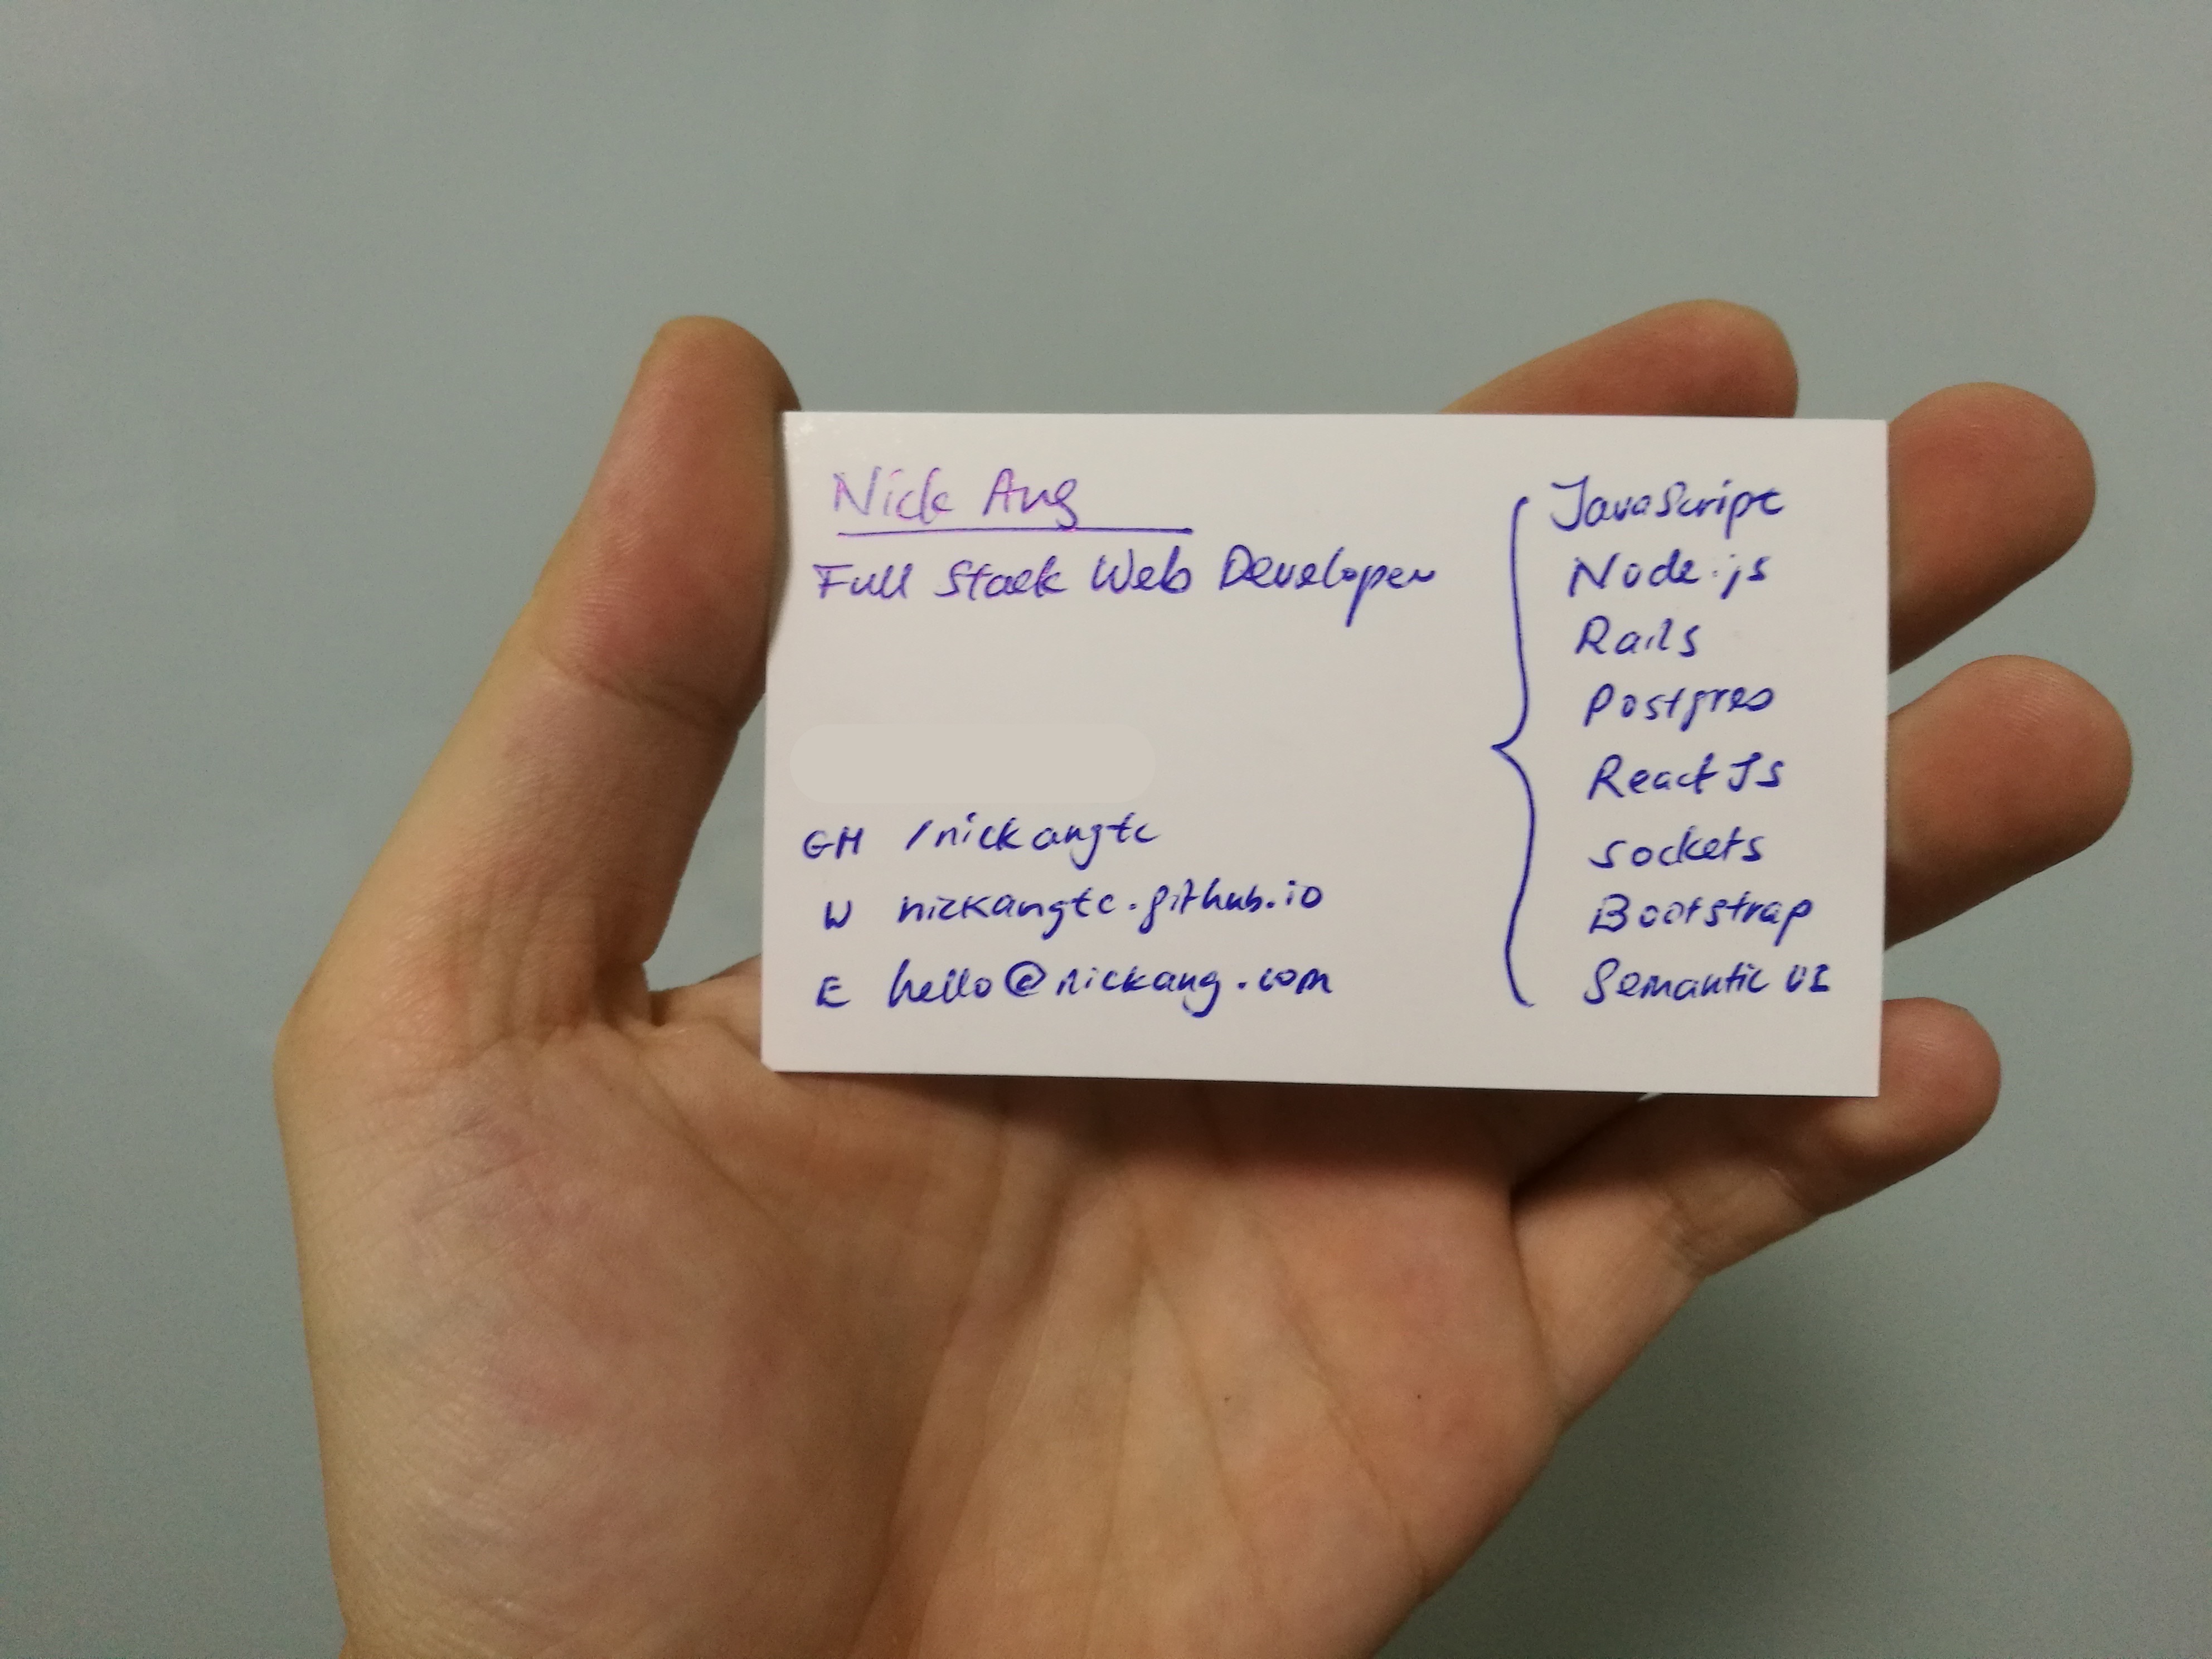 Nick Ang
Full Stack Web Developer
GH /nickangtc
W nickangtc.github.io
E hello@nickang.com
JavaScript
Node.js
Rails
Postgres
ReactJS
Sockets
Bootstrap
Semantic UI